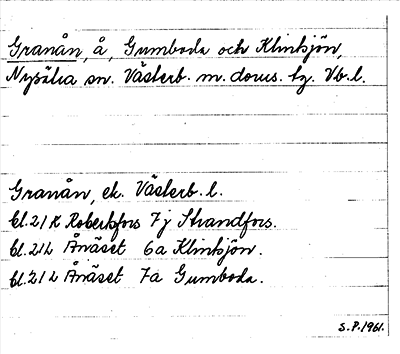 Granån, å, Gumboda och Klintsjön,
Nysätra sn. Västerb. m. doms. tg. Vb. l.
Granån, ek. Västerb. l.
bl. 21 K Robertsfors 7 j Strandfors.
bl. 21 L Ånäset 6 a Klintsjön.
bl. 21 L Ånäset 7a Gumboda.
S.P. 1961.